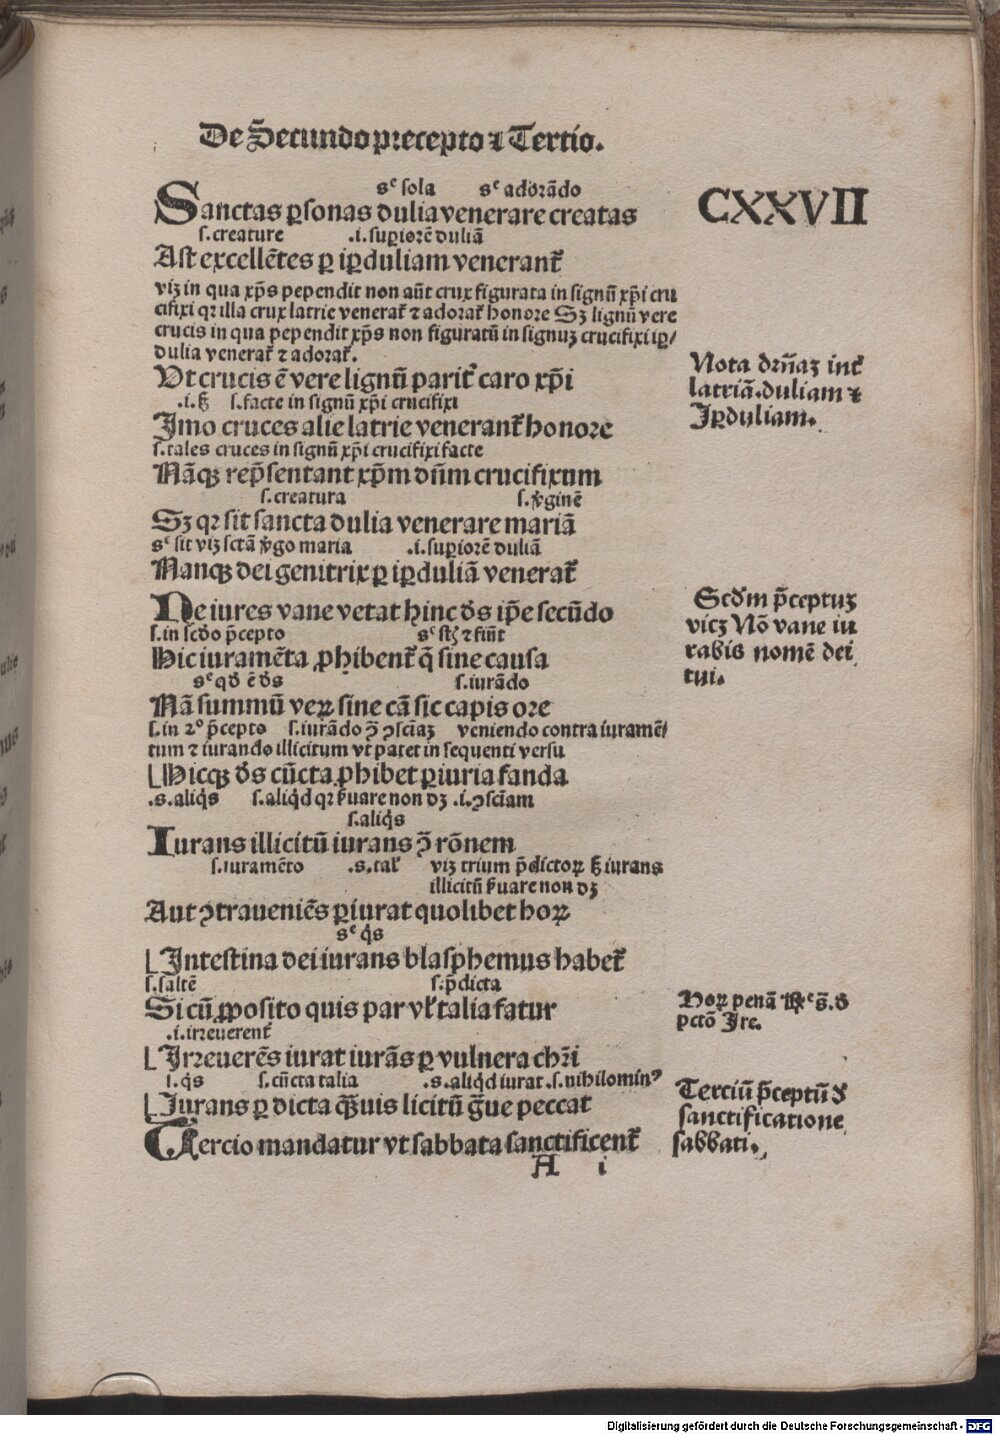 De Secundo precepto ⁊ Tertio.
CXXVII
sᶜ sola sᶜ adorãdo
Sanctas ꝑsonas dulia venerare creatas
s.creature .i.suꝑiorẽ duliã
Ast excellẽtes ꝑ iꝑduliam venerant᷑
viꝫ in qua xp̃s pependit non aũt crux figurata in signũ xp̃i cru
cifixi qꝛ illa crux latrie venerat᷑ ⁊ adorat᷑ honore Sꝫ lignũ vere
crucis in qua pependit xp̃s non figuratũ in signuꝫ crucifixi iꝑ/
dulia venerat᷑ ⁊ adorat᷑.
Vt crucis ẽ vere lignũ parit᷑ caro xp̃i
s.facte in signũ xp̃i crucifixi
Imo cruces alie latrie venerant᷑ honore
s.tales cruces in signũ xp̃i crucifixi facte
Nãqꝫ rep̃sentant xp̃m dñm crucifixum
s.creatura s.v̾ginẽ
Sꝫ qꝛ sit sancta dulia venerare mariã
sᶜ sit viꝫ sctã v̾go maria .i.suꝑiorẽ duliã
Nanqꝫ dei genitrix ꝑ iꝑduliã venerat᷑
Nota dr̃ñaꝫ int᷑
latriã.duliam ⁊
Iꝑduliam.
Ne iures vane vetat hinc dẽs ip̃e secũdo
s.in scdo p̃cepto
Hic iuramẽta ꝓhibent᷑ q̃ sine causa
sᶜ qd̾ ẽ dẽs s.iurãdo
Nã summũ veꝝ sine cã sic capis ore
s.in 2º p̃cepto s.iurãdo ↄ̃ ↄsciãꝫ veniendo contra iuramẽ/
tum ⁊ iurando illicitum vt patet in sequenti versu
Hicqꝫ dẽs cũcta ꝓhibet ꝑiuria fanda
.s.aliq̾s s.aliq̾d qꝛ s̾uare non dꝫ .i.ↄsciãm
s.aliq̾s
Iurans illicitũ iurans ↄ̃ rõnem
s.iuramẽto .s.tal᷑ viꝫ trium p̃dictoꝝ iurans
illicitũ s̾uare non dꝫ
Aut ↄtraueniẽs ꝑiurat quolibet hoꝝ
sᶜ q̾s
Scd̾m p̃ceptuꝫ
vicꝫ Nõ vane iu
rabis nomẽ dei
tui.
Intestina dei iurans blasphemus habet᷑
s.saltẽ s.p̃dicta
Si cũ ꝓposito quis par vl᷑ talia fatur
.i.irreuerent᷑
Irreuerẽs iurat iurãs ꝑ vulnera chr̃i
i.q̾s s.cũcta talia .s.aliq̾d iurat.s.nihilominꝰ
Iurans ꝑ dicta q̃uis licitũ g̃ue peccat
Tercio mandatur vt sabbata sanctificent᷑
Hoꝝ penã
pctõ Ire.
Terciũ p̃ceptũ d̾
sanctificatione
sabbati.
A i
Digitalisierung gefördert durch die Deutsche Forschungsgemeinschaft - DFG